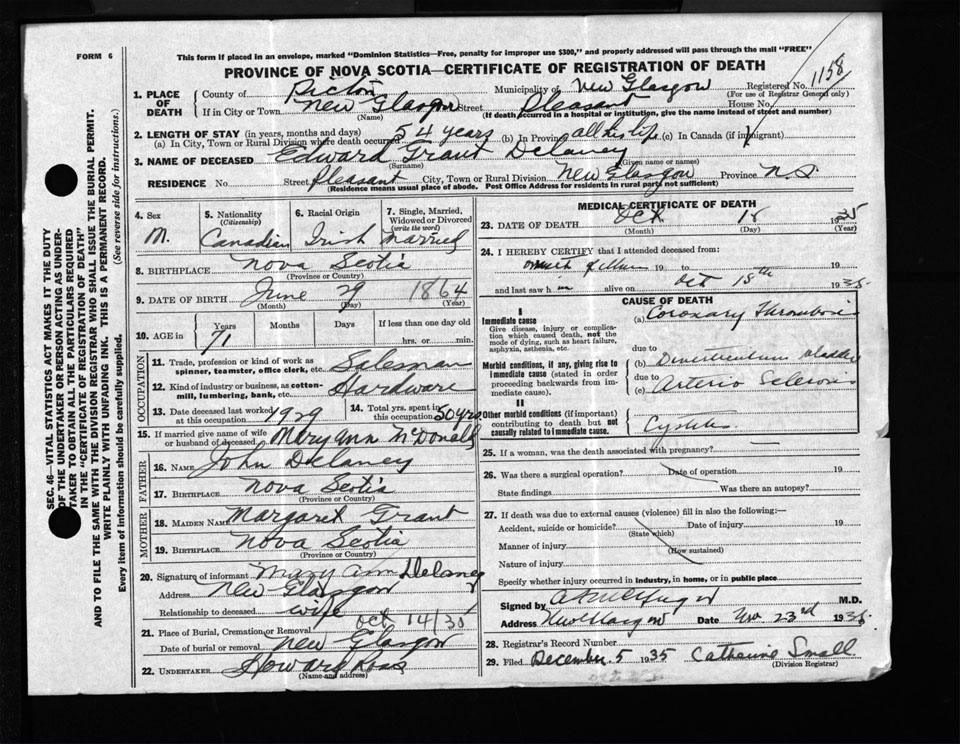 FORM 6
This form if placed in an envelope, marked "Dominion Statistics—Free, penalty for improper use $300," and properly addressed will pass through the mail "FREE"
PROVINCE OF NOVA SCOTIA—CERTIFICATE OF REGISTRATION OF DEATH
1158
1. PLACE OF DEATH County of Pictou Municipality of New Glasgow Registered No. (For use of Registrar General only)
If in City or Town New Glasgow (Name) Street Pleasant House No.
(If death occurred in a hospital or institution, give the name instead of street and number)
2. LENGTH OF STAY (in years, months and days)
(a) In City, Town or Rural Division where death occurred 54 years (b) In Province all his life (c) In Canada (if immigrant)
3. NAME OF DECEASED Edward Grant Delaney
(Surname) (Given name or names)
RESIDENCE No. Street Pleasant City, Town or Rural Division New Glasgow Province N.S.
(Residence means usual place of abode. Post Office Address for residents in rural parts not sufficient)
4. Sex M.
5. Nationality (Citizenship) Canadian
6. Racial Origin Irish
7. Single, Married, Widowed or Divorced (write the word) Married
8. BIRTHPLACE Nova Scotia
(Province or Country)
9. DATE OF BIRTH June 29 1864
(Month) (Day) (Year)
10. AGE in Years 71 Months Days If less than one day old hrs. or min.
OCCUPATION
11. Trade, profession or kind of work as spinner, teamster, office clerk, etc. Salesman
12. Kind of industry or business, as cotton-mill, lumbering, bank, etc. Hardware
13. Date deceased last worked at this occupation 1929
14. Total yrs. spent in this occupation 50 yrs
15. If married give name of wife or husband of deceased Mary Ann McDonald
FATHER
16. NAME John Delaney
17. BIRTHPLACE Nova Scotia
(Province or Country)
MOTHER
18. MAIDEN NAME Margaret Grant
19. BIRTHPLACE Nova Scotia
(Province or Country)
20. Signature of informant Mary Ann Delaney
Address New Glasgow
Relationship to deceased wife
21. Place of Burial, Cremation or Removal
Date of burial or removal New Glasgow
22. UNDERTAKER Howard Ross
(Name and address)
MEDICAL CERTIFICATE OF DEATH
23. DATE OF DEATH Oct 18 1935
(Month) (Day) (Year)
24. I HEREBY CERTIFY that I attended deceased from:
19 to 19
and last saw h m alive on Oct 18th 1935
CAUSE OF DEATH
I
Immediate cause (a) Coronary Thrombosis
Give disease, injury or complication which caused death, not the mode of dying, such as heart failure, asphyxia, asthenia, etc.
due to
Morbid conditions, if any, giving rise to immediate cause (stated in order proceeding backwards from immediate cause).
(b) Diverticulum bladder
due to
(c) Arterio Sclerosis
II
Other morbid conditions (if important) contributing to death but not causally related to immediate cause.
Cystitis
25. If a woman, was the death associated with pregnancy?
26. Was there a surgical operation? Date of operation 19
State findings Was there an autopsy?
27. If death was due to external causes (violence) fill in also the following:—
Accident, suicide or homicide? Date of injury 19
(State which)
Manner of injury
(How sustained)
Nature of injury
Specify whether injury occurred in industry, in home, or in public place
Signed by M.D.
Address New Glasgow Date Nov 23rd 1935
28. Registrar's Record Number
29. Filed December 5 1935 Catherine Small
(Division Registrar)
SEC. 46—VITAL STATISTICS ACT MAKES IT THE DUTY
OF THE UNDERTAKER OR PERSON ACTING AS UNDER-
TAKER TO OBTAIN ALL THE PARTICULARS REQUIRED
IN THE "CERTIFICATE OF REGISTRATION OF DEATH"
AND TO FILE THE SAME WITH THE DIVISION REGISTRAR WHO SHALL ISSUE THE BURIAL PERMIT.
WRITE PLAINLY WITH UNFADING INK. THIS IS A PERMANENT RECORD.
Every item of information should be carefully supplied. (See reverse side for instructions.)